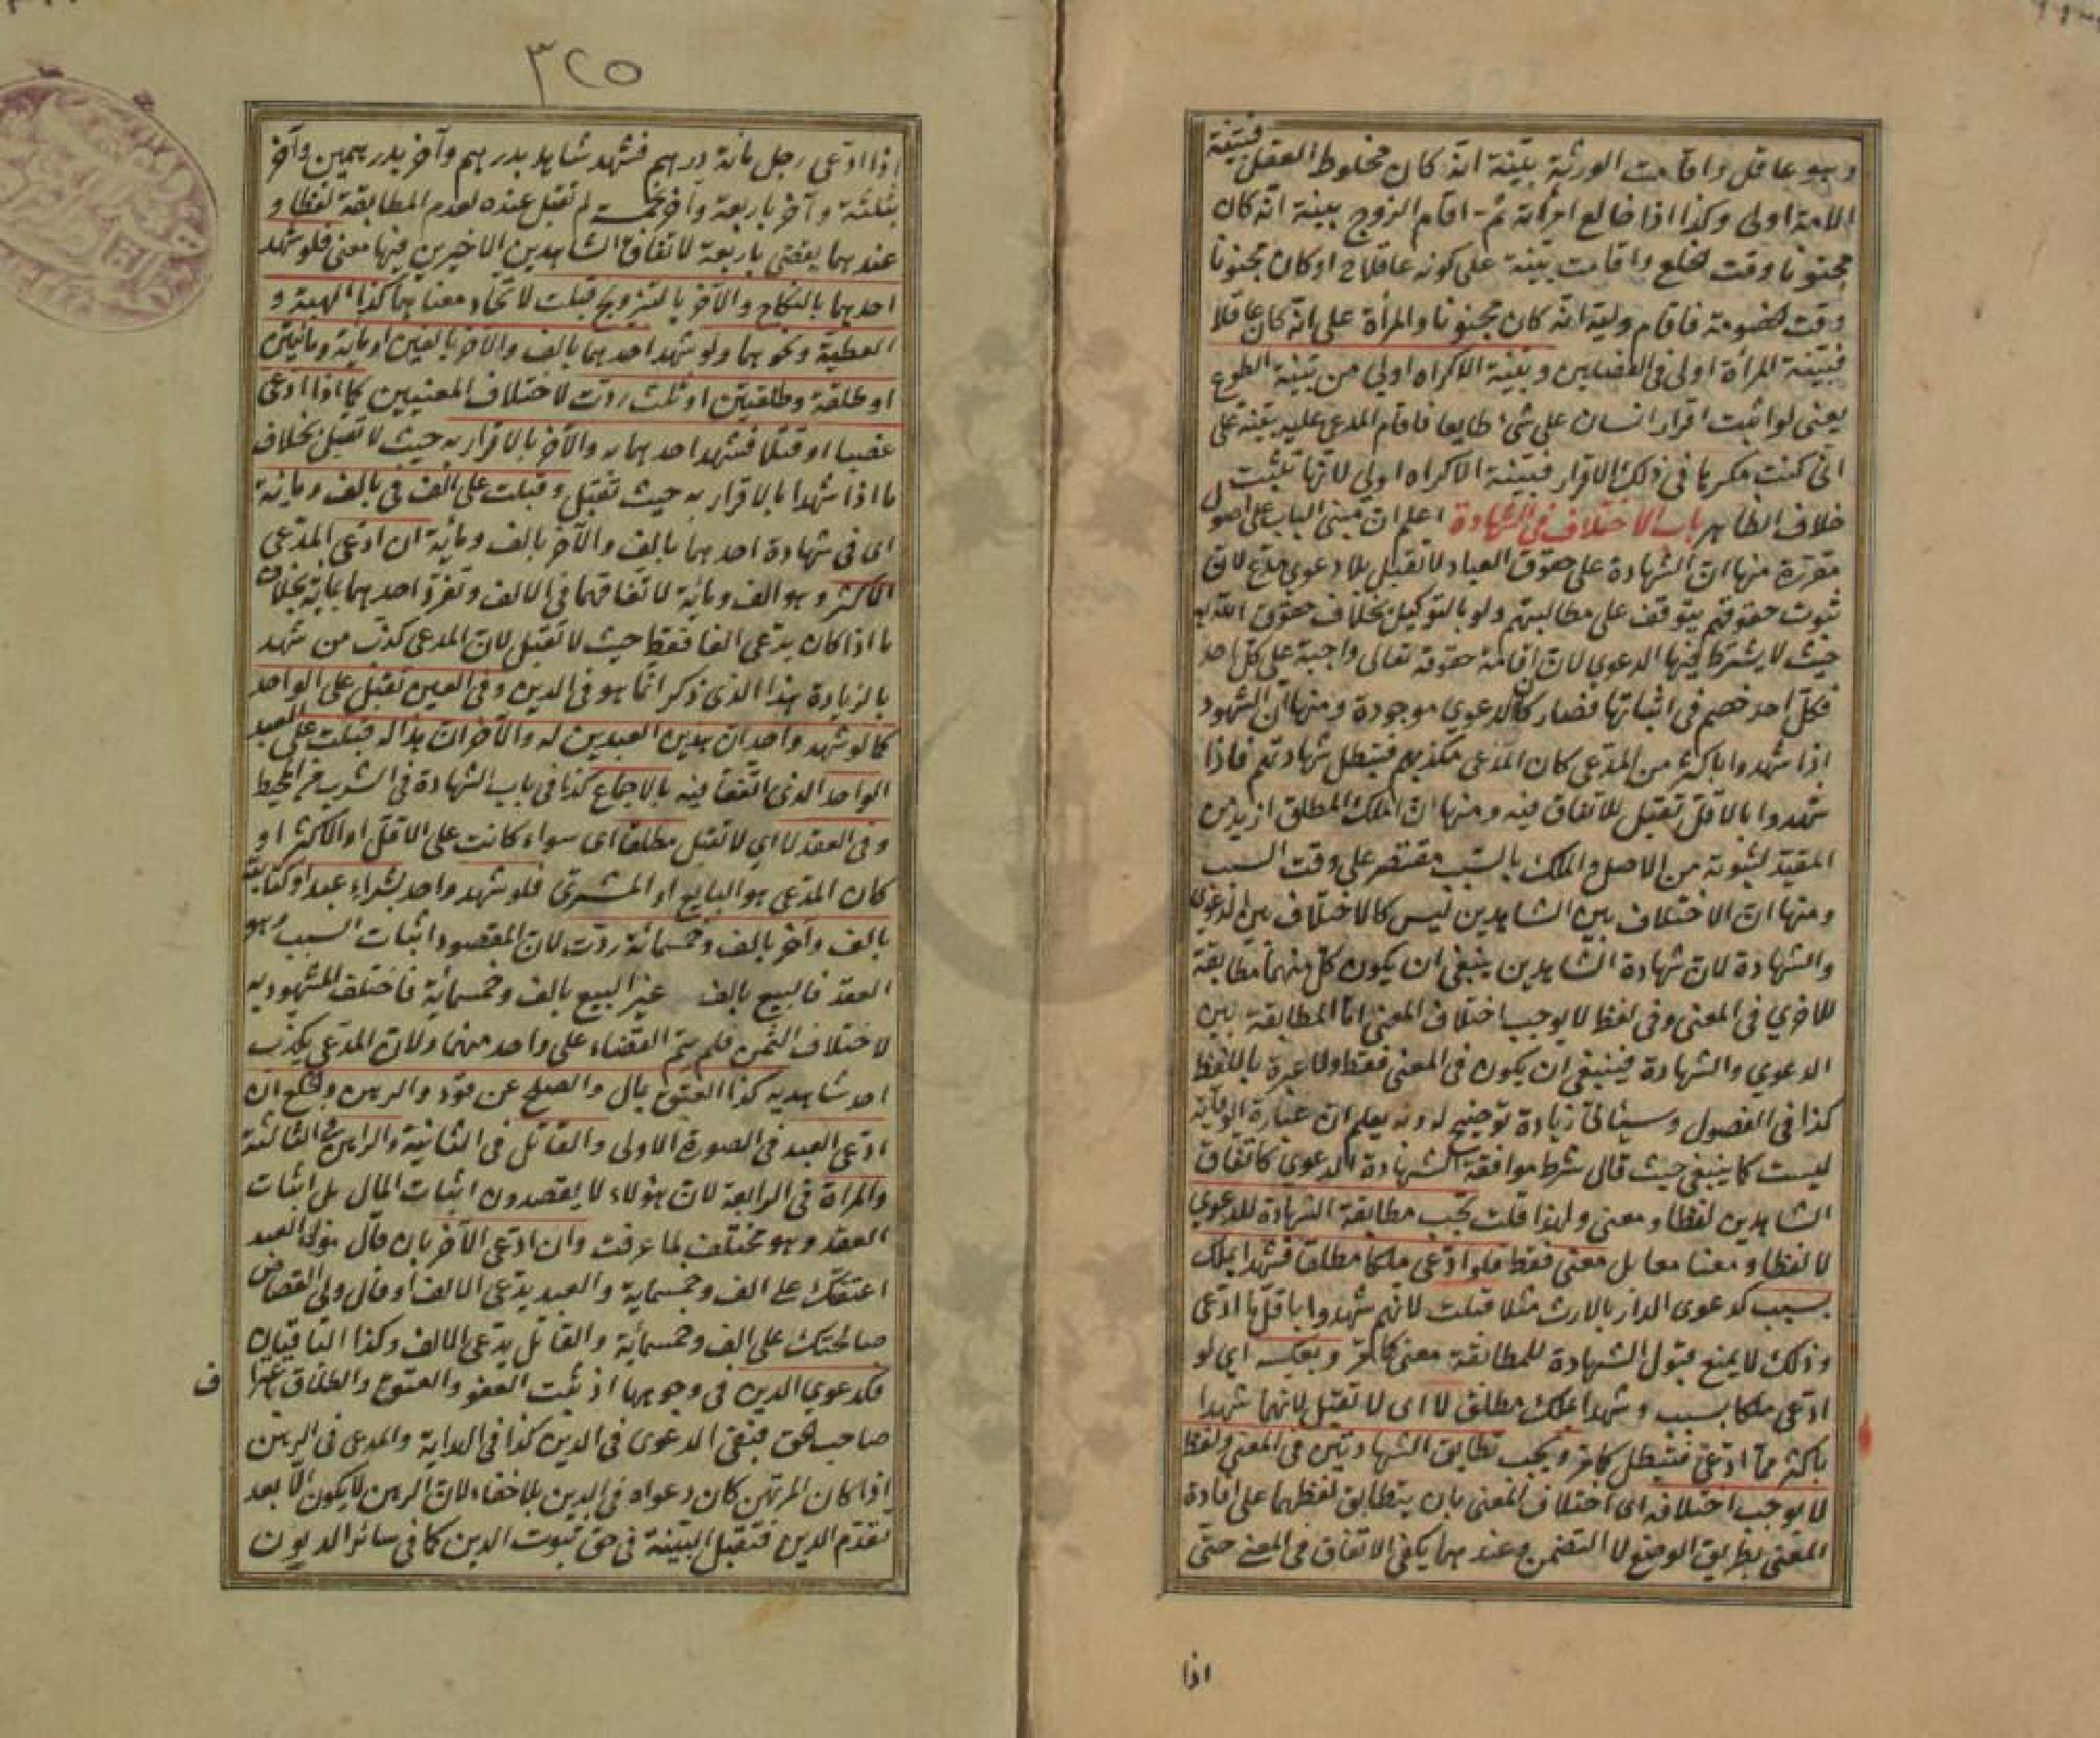 وهو عاقل واقامت الورثة بينة انه كان مخلوط العقل فبينة
الامة اولى وكذا اذا خالع امرأته ثم اقام الزوج بينة انه كان
مجنونا وقت الخلع واقامت بينة على كونه عاقلا ح او كان مجنونا
وقت الخصومة فاقام وليه انه كان مجنونا والمرأة على انه كان عاقلا
فبينة المرأة اولى في الفصلين وبينة الاكراه اولى من بينة الطوع
يعنى لو اثبت اقرار انسان على شئ طايعا فاقام المدعى عليه بينة على
انى كنت مكرها فى ذلك الاقرار فبينة الاكراه اولى لانها تثبت
خلاف الظاهر باب الاختلاف فى الشهادة اعلم ان مبنى الباب على اصول
مقررة منها ان الشهادة على حقوق العباد لا تقبل بلا دعوى مدع لان
ثبوت حقوقهم يتوقف على مطالبتهم ولو بالتوكيل بخلاف حقوق الله تع
حيث لا يشترط فيها الدعوى لان اقامة حقوقه تعالى واجبة على كل احد
فكل احد خصم فى اثباتها فصار كأن الدعوى موجودة ومنها ان الشهود
اذا شهدوا باكثر من المدعى كان المدعى مكذبهم فتبطل شهادتهم فاذا
شهدوا بالاقل تقبل للاتفاق فيه ومنها ان الملك المطلق ازيد من
المقيد لثبوته من الاصل والملك بالسبب مقتصر على وقت السبب
ومنها ان الاختلاف بين الشاهدين ليس كالاختلاف بين الدعوى
والشهادة لان شهادة الشاهدين ينبغى ان يكون كل منهما مطابقة
للاخرى فى المعنى وفى لفظ لا يوجب اختلاف المعنى اما المطابقة بين
الدعوى والشهادة فينبغى ان يكون فى المعنى فقط ولا عبرة باللفظ
كذا فى الفصول وسيأتى زيادة توضيح له وبه يعلم ان عبارة الوقاية
ليست كما ينبغى حيث قال شرط موافقة الشهادة الدعوى كاتفاق
الشاهدين لفظا ومعنى ولهذا قلت تجب مطابقة الشهادة للدعوى
لا لفظا ومعنا معا بل معنى فقط فلو ادعى ملكا مطلقا فشهدا بملك
بسبب كدعوى الدار بالارث مثلا قبلت لانهم شهدوا باقل مما ادعى
وذلك لا يمنع قبول الشهادة للمطابقة معنى كما مر وبعكسه اى لو
ادعى ملكا بسبب وشهدا بملك مطلق لا اى لا تقبل لانهما شهدا
باكثر مما ادعى فتبطل كما مر ويجب تطابق الشهادتين فى المعنى ولفظ
لا يوجب اختلافه اى اختلاف المعنى بان يتطابق لفظهما على افادة
المعنى بطريق الوضع لا التضمن وعندهما يكفى الاتفاق فى المعنى حتى
اذا
٣٢٥
اذا ادعى رجل مائة درهم فشهد شاهد بدرهم وآخر بدرهمين وآخر
بثلثة وآخر باربعة وآخر بخمسة لم تقبل عنده لعدم المطابقة لفظا و
عندهما يقضى باربعة لاتفاق الشاهدين الاخيرين فيها معنى فلو شهد
احدهما بالنكاح والآخر بالتزويج قبلت لاتحاد معناهما كذا الهبة و
العطية ونحوهما ولو شهد احدهما بالف والآخر بالفين او مائة ومائتين
او طلقة وطلقتين او ثلث ردت لاختلاف المعنيين كما اذا ادعى
غصبا او قتلا فشهد احدهما به والآخر بالاقرار به حيث لا تقبل بخلاف
ما اذا شهدا بالاقرار به حيث تقبل وقبلت على الف فى بالف ومائة
اى فى شهادة احدهما بالف والآخر بالف ومائة ان ادعى المدعى
الاكثر وهو الف ومائة لاتفاقهما فى الالف وتفرد احدهما بمائة بخلاف
ما اذا كان يدعى الفا فقط حيث لا تقبل لان المدعى كذب من شهد
بالزيادة هذا الذى ذكر انما هو فى الدين وفى العين تقبل على الواحد
كما لو شهد واحد ان هذين العبدين له والآخر ان هذا له قبلت على العبد
الواحد الذى اتفقا فيه بالاجماع كذا فى باب الشهادة فى الشرب من المحيط
وفى العقد لا اى لا تقبل مطلقا اى سواء كانت على الاقل او الاكثر او
كان المدعى هو البايع او المشترى فلو شهد واحد بشراء عبد او كتابته
بالف وآخر بالف وخمسمائة ردت لان المقصود اثبات السبب وهو
العقد فالبيع بالف غير البيع بالف وخمسمائة فاختلف المشهود به
لاختلاف الثمن فلم يتم القضاء على واحد منهما ولان المدعى يكذب
احد شاهديه كذا العتق بمال والصلح عن قود والرهن والخلع ان
ادعى العبد فى الصورة الاولى والقاتل فى الثانية والراهن فى الثالثة
والمرأة فى الرابعة لان هؤلاء لا يقصدون اثبات المال بل اثبات
العقد وهو مختلف لما عرفت وان ادعى الآخر بان قال مولى العبد
اعتقتك على الف وخمسماية والعبد يدعى الالف او قال ولى القصاص
صالحتك على الف وخمسمائة والقاتل يدعى الالف وكذا الباقيان
فكدعوى الدين فى وجوهها اذ ثبت العفو والعتق والطلاق باعتراف
صاحب الحق فبقى الدعوى فى الدين كذا فى الهداية والمدعى فى الرهن
اذا كان المرتهن كان دعواه فى الدين بلا خفاء لان الرهن لا يكون الا بعد
تقدم الدين فتقبل البينة فى حق ثبوت الدين كما فى سائر الديون